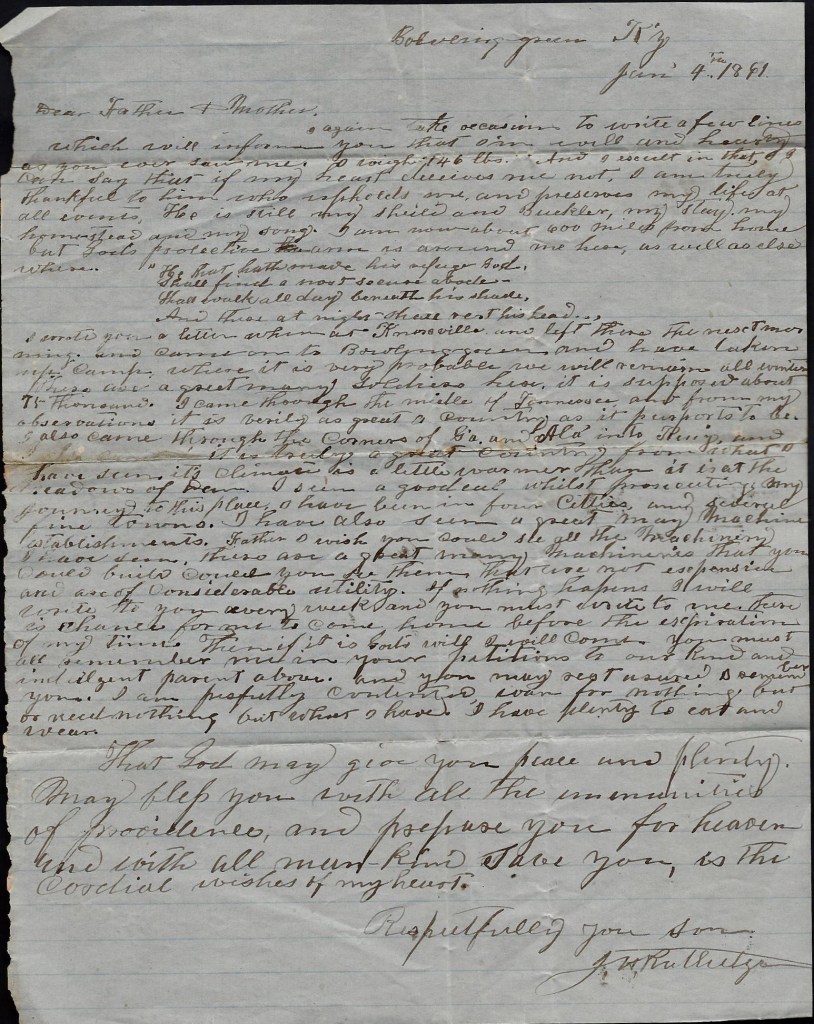 Bowling green Ky
Jan 4th 1861
Dear Father & Mother.
again take occasion to write a few lines
which will inform you that I'm well and hearty
as you ever saw me. I weigh 146 lbs. And I exult in that, I
can say that if my heart deceives me not, I am truly
thankful to him who upholds me, and preserves my life, at
all events, He is still my shield and buckler, my stay, my
homestead and my song. I am now about 600 miles from home
but Gods protective arm is around me here, as well as else
where. "He that hath made his refuge God,
Shall find a most secure abode—
Shall walk all day beneath his shade,
And there at night shall rest his head...
I wrote you a letter when at Knoxville and left there the next mor
ning. and came on to Bowlynggreen and have taken
up camp. where it is very probable we will remain all winter
There are a great many Soldiers here, it is supposed about
75 thousand. I came through the midle of Tennessee, and from my
observations it is verily as great a Country as it purports to be.
I also came through the Corners of Ga. and Ala. into and
it is truly a great Country from what
have seen, its climate is a little warmer than it is at the
Meadows of Dan. I seen a good eal whilst prosecuting my
journey to this place, I have been in four Citties, and several
fine towns. I have also seen a great many Machine
establishments. Father I wish you could see all the Machinery
I have seen, there are a great many Machineries that you
could build could you see them, that are not expensive
and are of considerable utility. If nothing hapens I will
write to you every week and you must write to me. there
is chance for me to come home before the expiration
of my time. Then if it is Gods will I will Come. you must
all remember me in your petitions to our kind and
indulgent parent above. and you may rest asured I remember
you. I am perfectly contented wan for nothing but
or need nothing but what I have, I have plenty to eat and
wear.
That God may give you peace and plenty.
May bless you with all the immunities
of providence, and prepare you for heaven
and with all man-kind Save you, is the
Cordial wishes of my heart.
Respectfully you son
J. H Rutledge